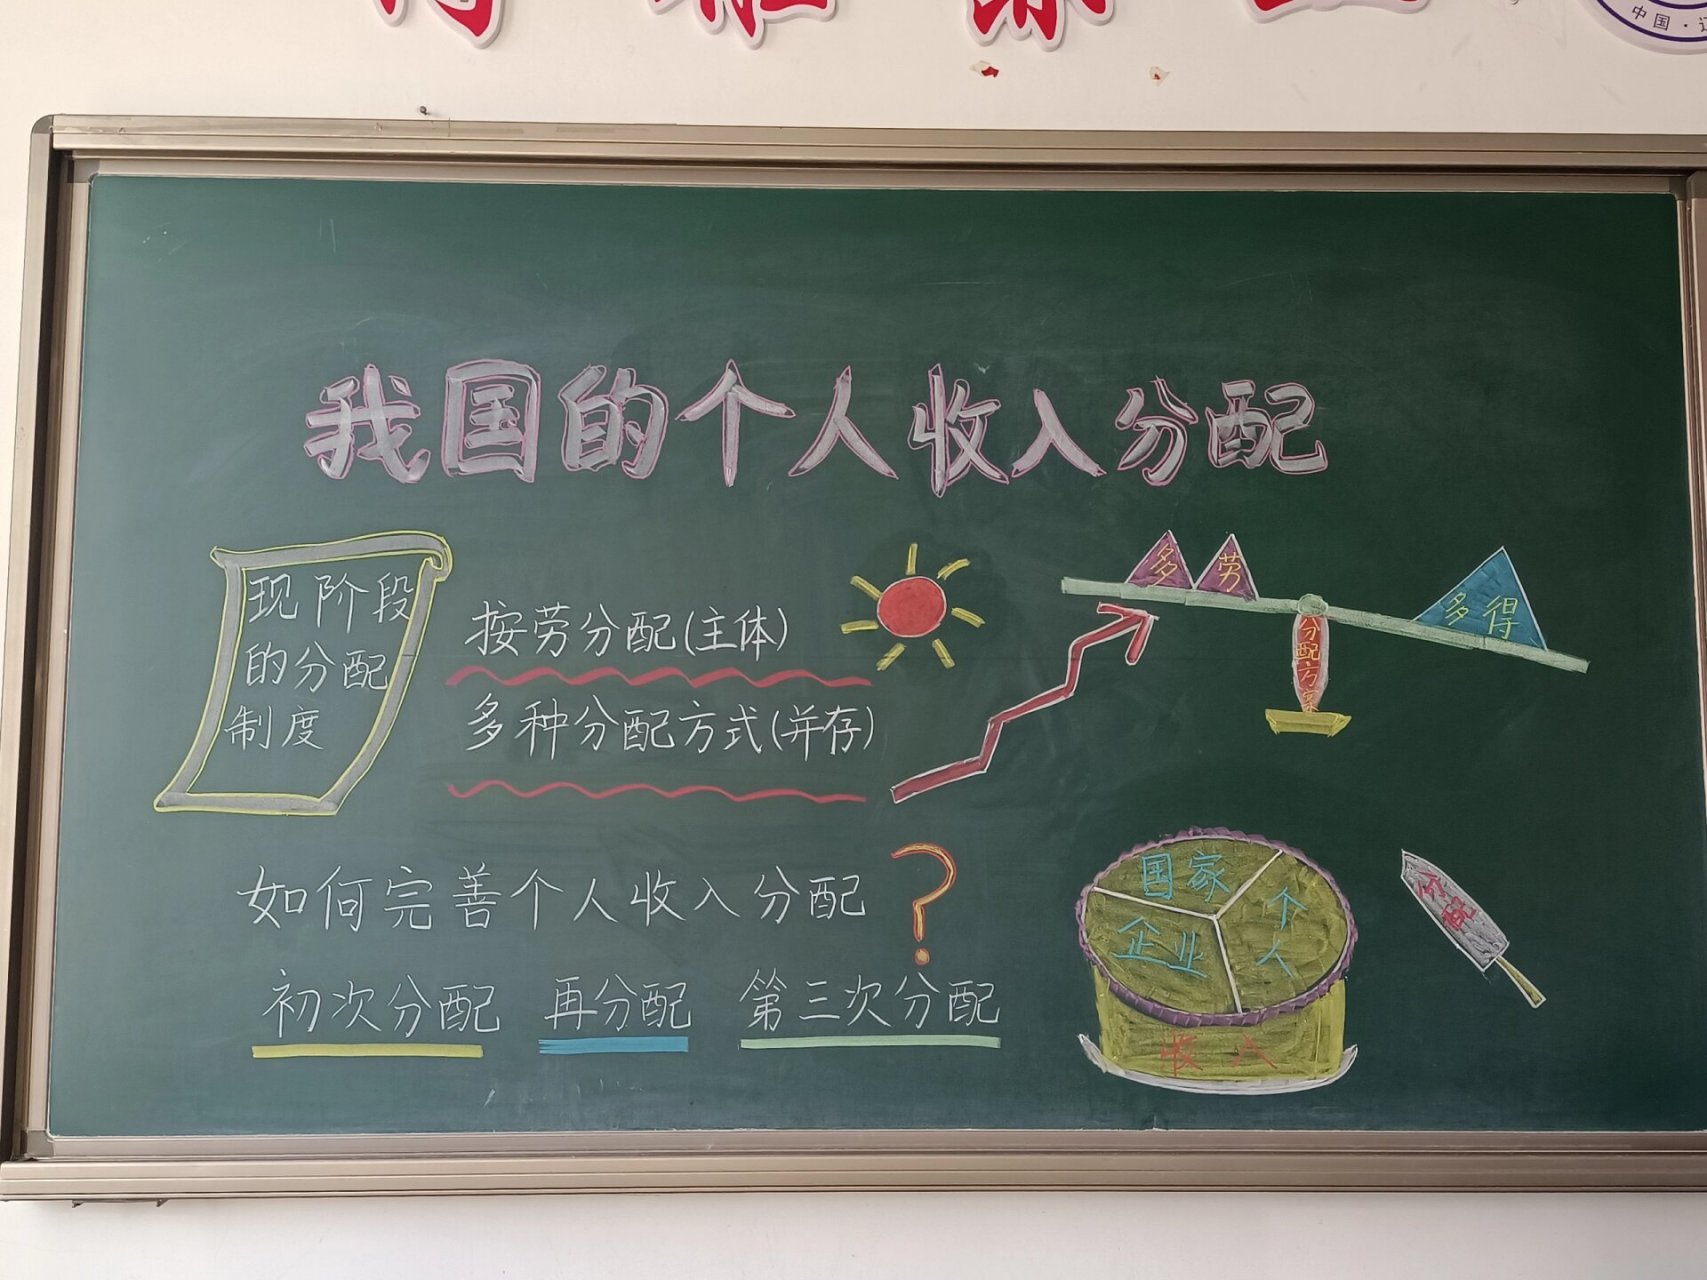 中国·辽
我国的个人收入分配
现阶段
的分配
制度
按劳分配(主体)
多种分配方式(并存)
多 劳
多得
分配方案
如何完善个人收入分配?
初次分配 再分配 第三次分配
国家
企业
个人
收入
分配